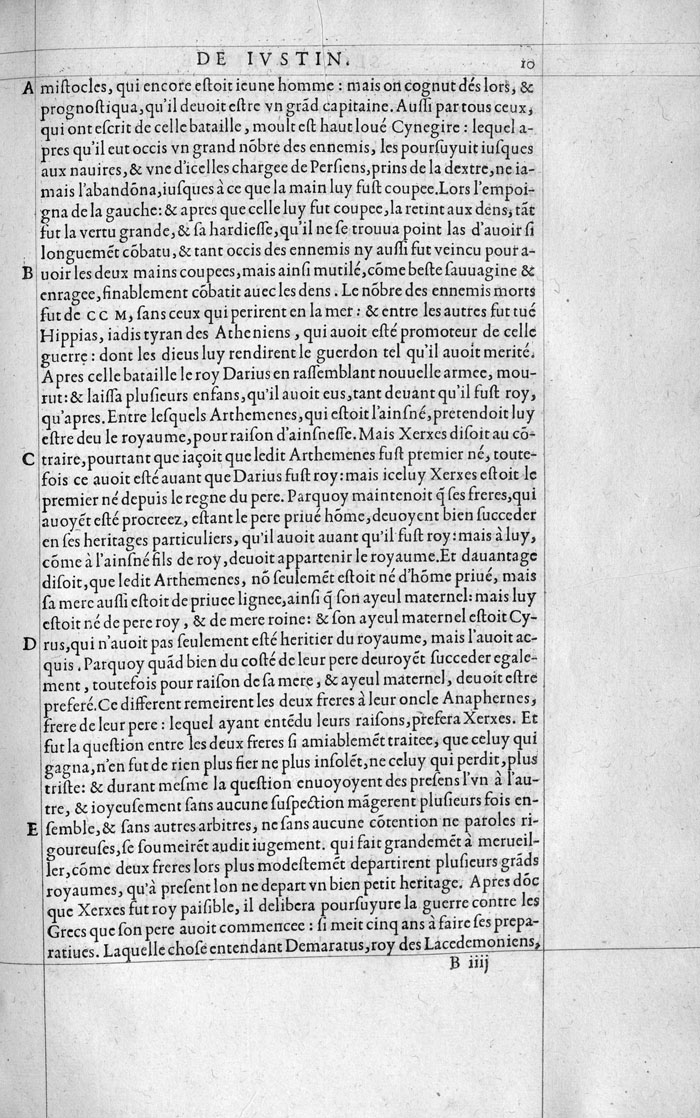 DE IVSTIN. 10
A miſtocles, qui encore eſtoit ieune homme : mais on cognut dés lors, &
prognoſtiqua, qu'il deuoit eſtre vn grãd capitaine. Auſſi par tous ceux,
qui ont eſcrit de celle bataille, moult eſt haut loué Cynegire : lequel a-
pres qu'il eut occis vn grand nõbre des ennemis, les pourſuyuit iuſques
aux nauires, & vne d'icelles chargee de Perſiens, prins de la dextre, ne ia-
mais l'abandõna, iuſques à ce que la main luy fuſt coupee. Lors l'empoi-
gna de la gauche: & apres que celle luy fut coupee, la retint aux dens, tãt
fut la vertu grande, & ſa hardieſſe, qu'il ne ſe trouua point las d'auoir ſi
longuemẽt cõbatu, & tant occis des ennemis ny auſſi fut veincu pour a-
B uoir les deux mains coupees, mais ainſi mutilé, cõme beſte ſauuagine &
enragee, finablement cõbatit auec les dens. Le nõbre des ennemis morts
fut de CC M, ſans ceux qui perirent en la mer : & entre les autres fut tué
Hippias, iadis tyran des Atheniens, qui auoit eſté promoteur de celle
guerre : dont les dieus luy rendirent le guerdon tel qu'il auoit merité.
Apres celle bataille le roy Darius en raſſemblant nouuelle armee, mou-
rut: & laiſſa pluſieurs enfans, qu'il auoit eus, tant deuant qu'il fuſt roy,
qu'apres. Entre leſquels Arthemenes, qui eſtoit l'aiſné, pretendoit luy
eſtre deu le royaume, pour raiſon d'ainſneſſe. Mais Xerxes diſoit au cõ-
C traire, pourtant que iaçoit que ledit Arthemenes fuſt premier né, toute-
fois ce auoit eſté auant que Darius fuſt roy: mais iceluy Xerxes eſtoit le
premier né depuis le regne du pere. Parquoy maintenoit q̃ ſes freres, qui
auoyẽt eſté procreez, eſtant le pere priué hõme, deuoyent bien ſucceder
en ſes heritages particuliers, qu'il auoit auant qu'il fuſt roy: mais à luy,
cõme à l'ainſné fils de roy, deuoit appartenir le royaume. Et dauantage
diſoit, que ledit Arthemenes, nõ ſeulemẽt eſtoit né d'hõme priué, mais
ſa mere auſſi eſtoit de priuee lignee, ainſi q̃ ſon ayeul maternel: mais luy
eſtoit né de pere roy, & de mere roine: & ſon ayeul maternel eſtoit Cy-
D rus, qui n'auoit pas ſeulement eſté heritier du royaume, mais l'auoit ac-
quis. Parquoy quãd bien du coſté de leur pere deuroyẽt ſucceder egale-
ment, toutefois pour raiſon de ſa mere, & ayeul maternel, deuoit eſtre
preferé. Ce different remeirent les deux freres à leur oncle Anaphernes,
frere de leur pere : lequel ayant entẽdu leurs raiſons, p̃fera Xerxes. Et
fut la queſtion entre les deux freres ſi amiablemẽt traitee, que celuy qui
gagna, n'en fut de rien plus fier ne plus inſolẽt, ne celuy qui perdit, plus
triſte: & durant meſme la queſtion enuoyoyent des preſens l'vn à l'au-
tre, & ioyeuſement ſans aucune ſuſpection mãgerent pluſieurs fois en-
E ſemble, & ſans autres arbitres, ne ſans aucune cõtention ne paroles ri-
goureuſes, ſe ſoumeirẽt audit iugement. qui fait grandemẽt à merueil-
ler, cõme deux freres lors plus modeſtemẽt departirent pluſieurs grãds
royaumes, qu'à preſent lon ne depart vn bien petit heritage. Apres dõc
que Xerxes fut roy paiſible, il delibera pourſuyure la guerre contre les
Grecs que ſon pere auoit commencee : ſi meit cinq ans à faire ſes prepa-
ratiues. Laquelle choſe entendant Demaratus, roy des Lacedemoniens,
B iiij